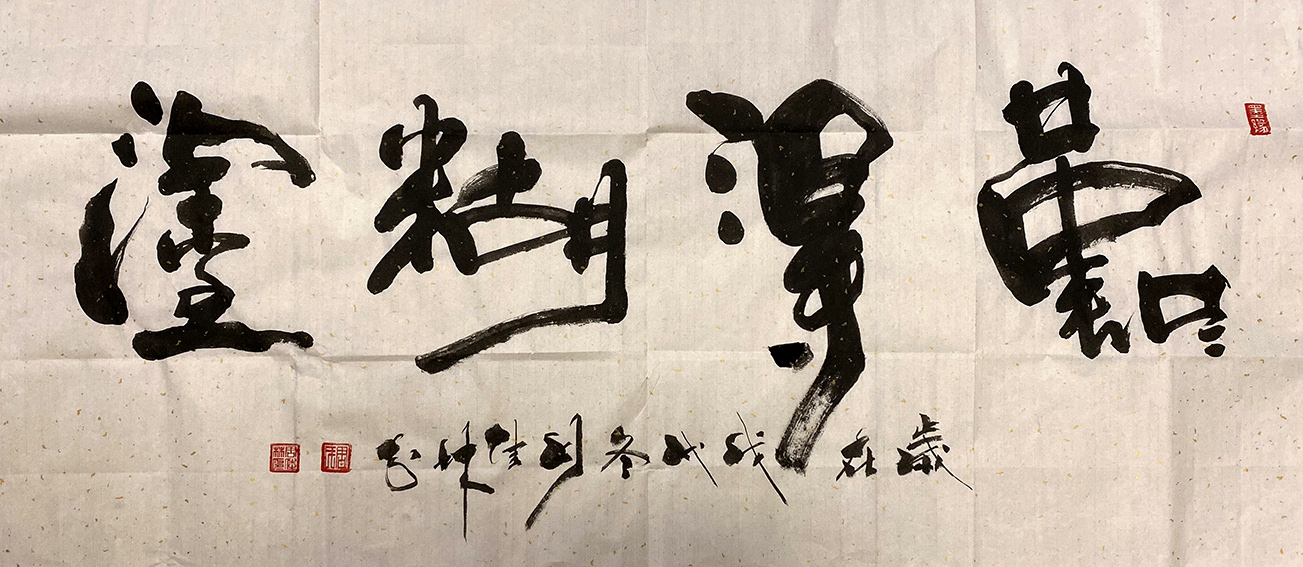 難得糊塗
歲在戊戌冬周林書